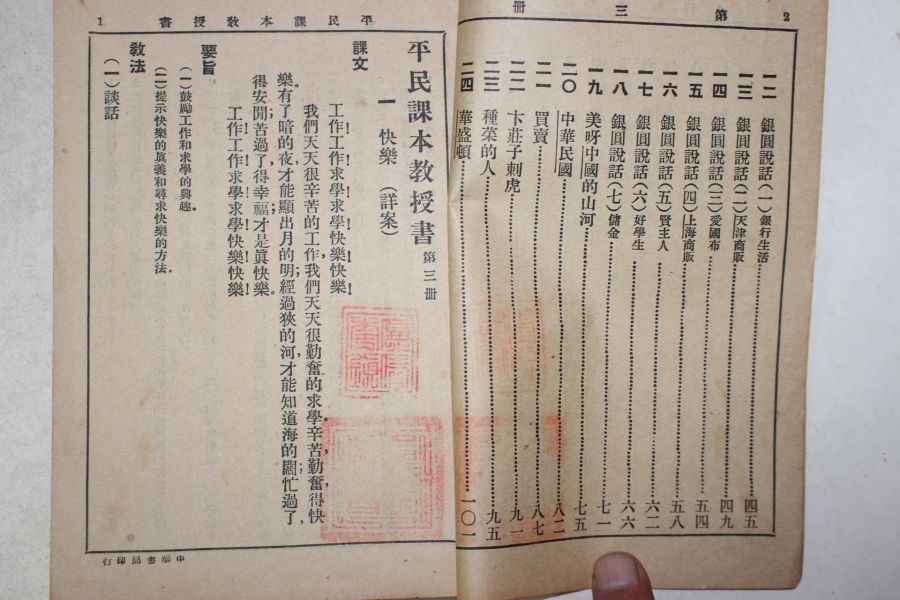 2
第三冊
一二 銀圓說話(一)銀行生活 四五
一三 銀圓說話(二)天津商販 四九
一四 銀圓說話(三)愛國布 五四
一五 銀圓說話(四)上海商販 五八
一六 銀圓說話(五)賢主人 六二
一七 銀圓說話(六)好學生 六六
一八 銀圓說話(七)儲金 七一
一九 美呀中國的山河 七五
二〇 中華民國 八二
二一 買賣 八七
二二 卞莊子刺虎 九一
二三 種菜的人 九五
二四 華盛頓 一〇一
平民課本教授書
1
平民課本教授書 第三冊
一 快樂 (詳案)
課文
工作!工作!求學!求學!快樂!快樂!
我們天天很辛苦的工作,我們天天很勤奮的求學。辛苦,勤奮,得快
樂。有了暗的夜,才能顯出月的明;經過狹的河,才能知道海的闊;忙過了,
得安閒;苦過了,得幸福;才是眞快樂。
工作!工作!求學!求學!快樂!快樂!
要旨
(一)鼓勵工作和求學的興趣。
(二)提示快樂的眞義和尋求快樂的方法。
教法
(一)談話
中華書局印行